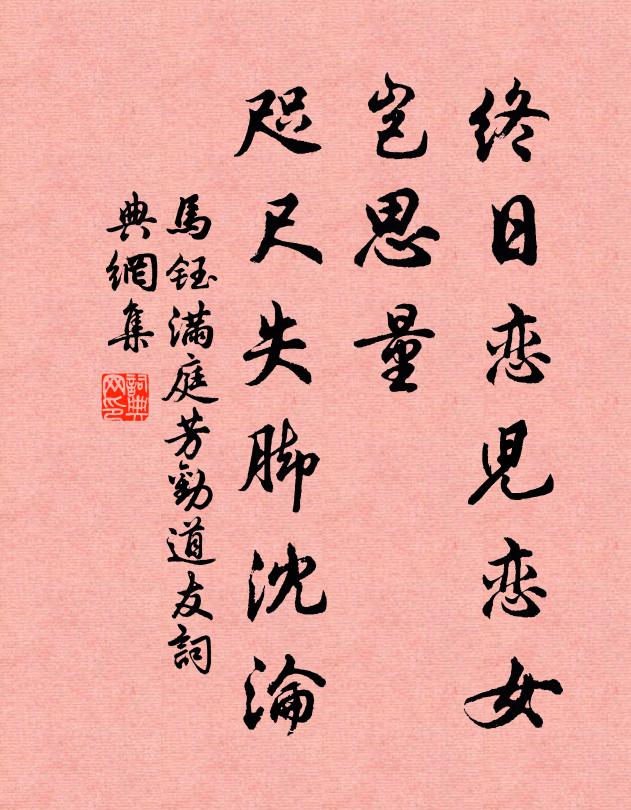 终日恋児恋女
岂思量
咫尺失脚沈淪
馬鈺满庭芳勸道友詞
典網集
詞典
网印